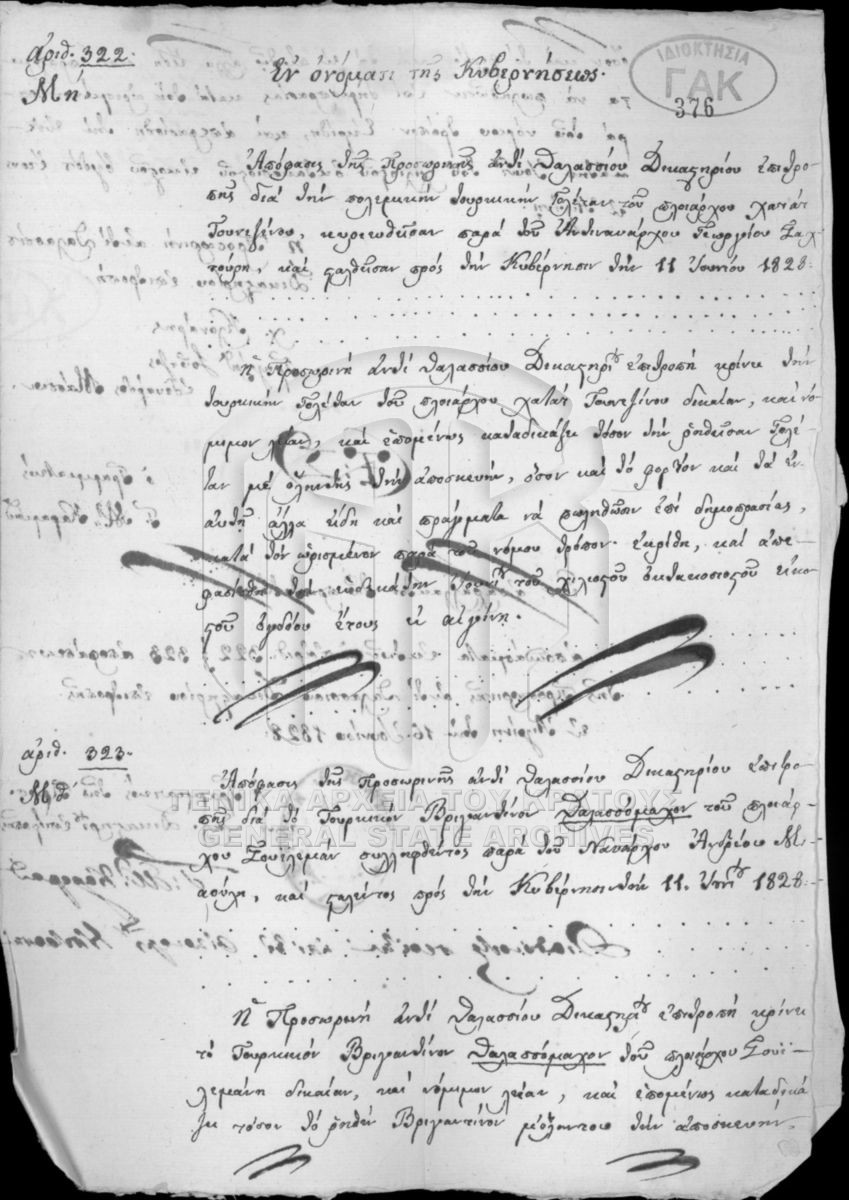 ἀριθ. 322.
Ἐν ὀνόματι τῆς Κυβερνήσεως.
ΙΔΙΟΚΤΗΣΙΑ
ΓΑΚ
376
Μή
Ἀπόφασις τῆς Προσωρινῆς ἀντὶ Θαλασσίου Δικαστηρίου ἐπιτρο-
πῆς διὰ τὴν πολεμικὴν τουρκικὴν Γολέταν τοῦ πλοιάρχου χατὰτ
Τουνεζίνου, κυριευθεῖσαν παρὰ τοῦ Ἀντιναυάρχου Γεωργίου Σαχ-
τούρη, καὶ σταλθεῖσαν πρὸς τὴν Κυβέρνησιν τὴν 11 Ἰουνίου 1828.
Ἡ Προσωρινὴ ἀντὶ Θαλασσίου Δικαστηρίου ἐπιτροπὴ κρίνει τὴν
τουρκικὴν Γολέταν τοῦ πλοιάρχου χατὰτ Τουνεζίνου δικαίαν, καὶ νό-
μιμον λείαν, καὶ ἑπομένως καταδικάζει τόσον τὴν ῥηθεῖσαν Γολέ-
ταν μὲ ὅλην της τὴν ἀποσκευήν, ὅσον καὶ τὸ φορτίον καὶ τὰ ἐν
αὐτῇ ἄλλα εἴδη καὶ πράγματα νὰ πωληθῶσιν ἐπὶ δημοπρασίας,
κατὰ τὸν ὡρισμένον παρὰ τοῦ νόμου τρόπον. ἐκρίθη, καὶ ἀπε-
φασίσθη τὴν τοῦ χιλιοστοῦ ὀκτακοσιοστοῦ εἰκο-
στοῦ ὀγδόου ἔτους ἐν Αἰγίνῃ.
ἀριθ. 323.
Ἀπόφασις τῆς Προσωρινῆς ἀντὶ Θαλασσίου Δικαστηρίου ἐπιτρο-
πῆς διὰ τὸ Τουρκικὸν Βριγαντίνον Θαλασσόμαχον τοῦ πλοιάρ-
χου Σουλεμὰν συλληφθέντος παρὰ τοῦ Ναυάρχου Ἀνδρέου Μι-
αούλη, καὶ σταλέντος πρὸς τὴν Κυβέρνησιν τὴν 11. Ἰουνίου 1828.
ΓΕΝΙΚΑ ΑΡΧΕΙΑ ΤΟΥ ΚΡΑΤΟΥΣ
GENERAL STATE ARCHIVES
Ἡ Προσωρινὴ ἀντὶ Θαλασσίου Δικαστηρίου ἐπιτροπὴ κρίνει
τὸ Τουρκικὸν Βριγαντίνον Θαλασσόμαχον τοῦ πλοιάρχου Σουϊ-
λεμάνη δικαίαν, καὶ νόμιμον λείαν, καὶ ἑπομένως καταδικά
ζει τόσον τὸ ῥηθὲν Βριγαντίνον μὲ ὅλην του τὴν ἀποσκευήν,